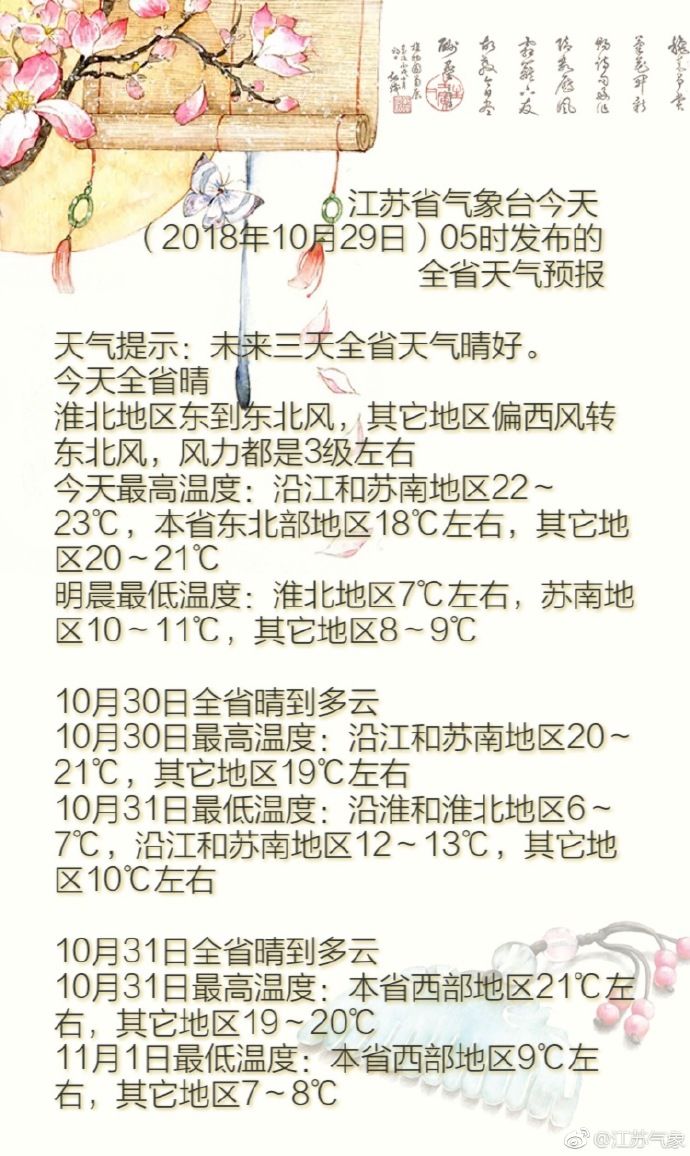 江苏省气象台今天
（2018年10月29日）05时发布的
全省天气预报
天气提示：未来三天全省天气晴好。
今天全省晴
淮北地区东到东北风，其它地区偏西风转
东北风，风力都是3级左右
今天最高温度：沿江和苏南地区22～
23℃，本省东北部地区18℃左右，其它地
区20～21℃
明晨最低温度：淮北地区7℃左右，苏南地
区10～11℃，其它地区8～9℃
10月30日全省晴到多云
10月30日最高温度：沿江和苏南地区20～
21℃，其它地区19℃左右
10月31日最低温度：沿淮和淮北地区6～
7℃，沿江和苏南地区12～13℃，其它地
区10℃左右
10月31日全省晴到多云
10月31日最高温度：本省西部地区21℃左
右，其它地区19～20℃
11月1日最低温度：本省西部地区9℃左
右，其它地区7～8℃
@江苏气象